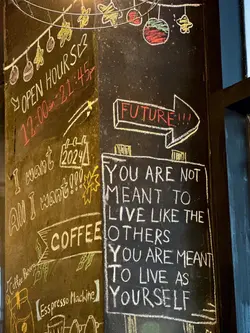 OPEN HOURS
12:00-21:45
I want
2024
All I want!!!
COFFEE
[Espresso Machine]
FUTURE!!!
YOU ARE NOT
MEANT TO
LIVE LIKE THE
OTHERS
YOU ARE MEANT
TO LIVE AS
YOURSELF